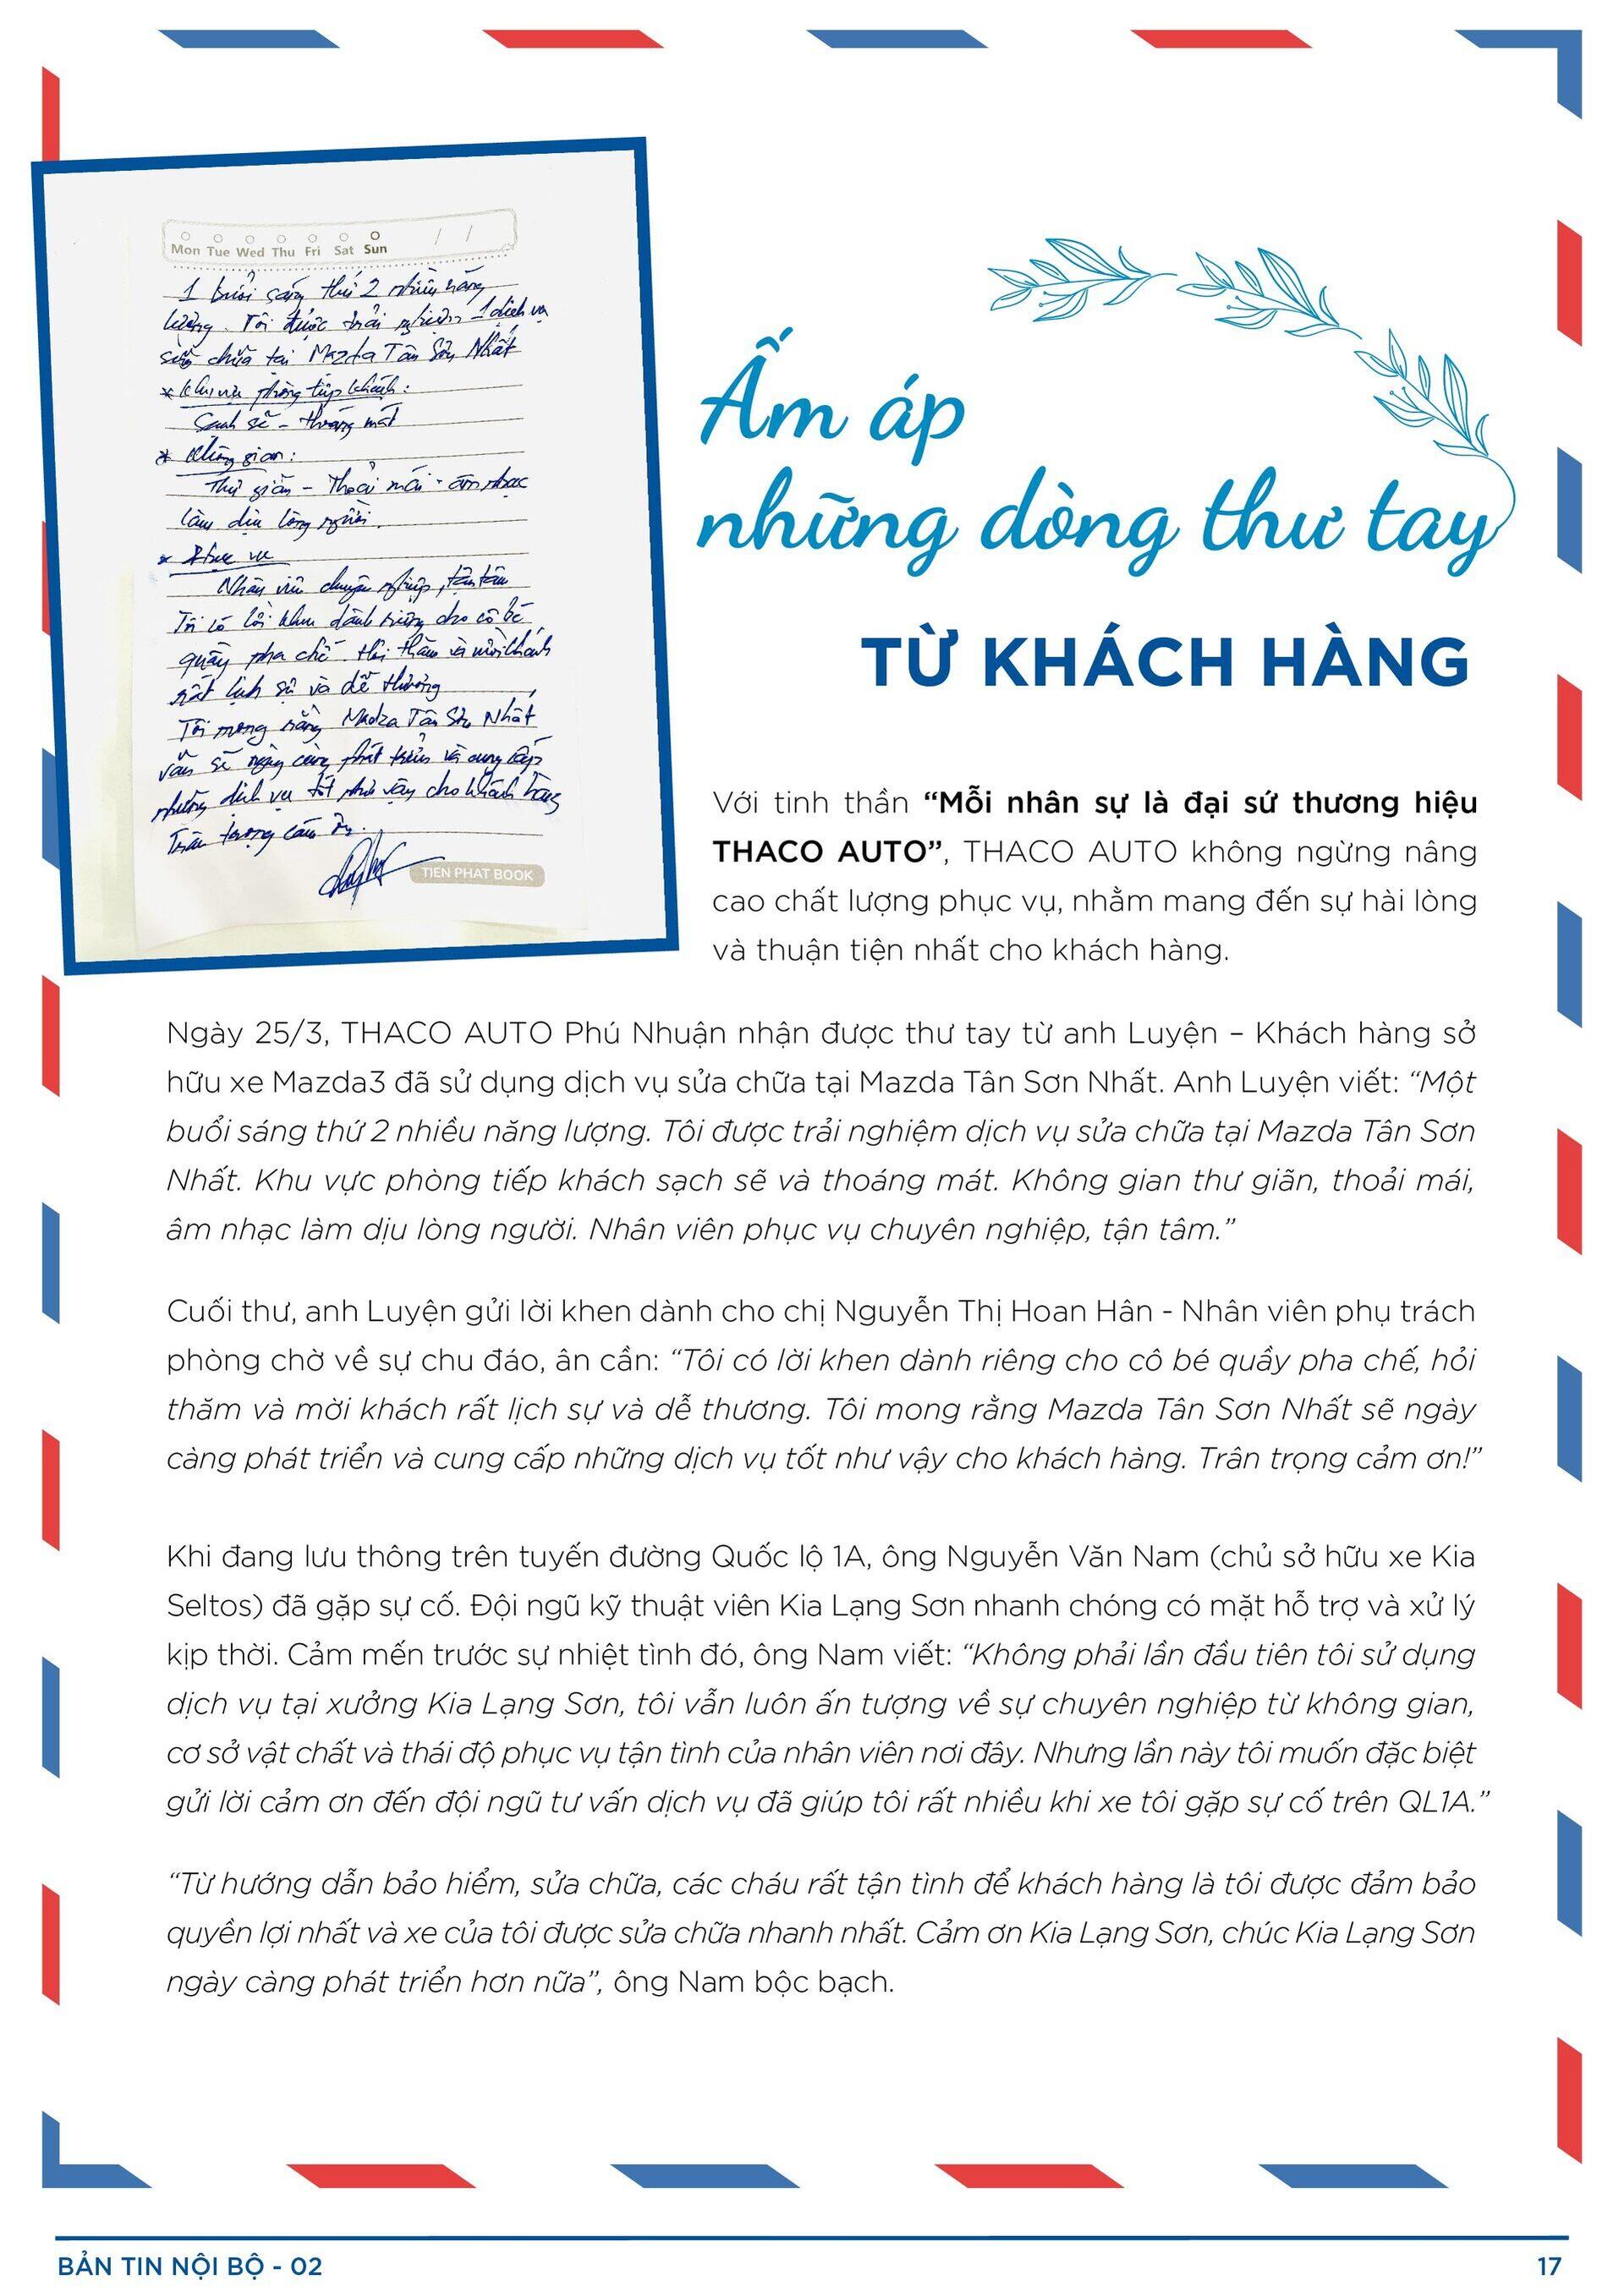 Mon Tue Wed Thu Fri Sat Sun / /
1 buổi sáng thứ 2 nhiều năng
lượng. Tôi được trải nghiệm 1 dịch vụ
sửa chữa tại Mazda Tân Sơn Nhất
* Khu vực phòng tiếp khách:
Sạch sẽ - thoáng mát
* Không gian:
Thư giãn - Thoải mái - âm nhạc
làm dịu lòng người.
* Phục vụ
Nhân viên chuyên nghiệp, tận tâm
Tôi có lời khen dành riêng cho cô bé
quầy pha chế. hỏi thăm và mời khách
rất lịch sự và dễ thương
Tôi mong rằng Madza Tân Sơn Nhất
vẫn sẽ ngày càng phát triển và cung cấp
những dịch vụ tốt như vậy cho khách hàng
Trân trọng cảm ơn.
TIEN PHAT BOOK
Ấm áp
những dòng thư tay
TỪ KHÁCH HÀNG
Với tinh thần “Mỗi nhân sự là đại sứ thương hiệu
THACO AUTO”, THACO AUTO không ngừng nâng
cao chất lượng phục vụ, nhằm mang đến sự hài lòng
và thuận tiện nhất cho khách hàng.
Ngày 25/3, THACO AUTO Phú Nhuận nhận được thư tay từ anh Luyện – Khách hàng sở
hữu xe Mazda3 đã sử dụng dịch vụ sửa chữa tại Mazda Tân Sơn Nhất. Anh Luyện viết: “Một
buổi sáng thứ 2 nhiều năng lượng. Tôi được trải nghiệm dịch vụ sửa chữa tại Mazda Tân Sơn
Nhất. Khu vực phòng tiếp khách sạch sẽ và thoáng mát. Không gian thư giãn, thoải mái,
âm nhạc làm dịu lòng người. Nhân viên phục vụ chuyên nghiệp, tận tâm.”
Cuối thư, anh Luyện gửi lời khen dành cho chị Nguyễn Thị Hoan Hân - Nhân viên phụ trách
phòng chờ về sự chu đáo, ân cần: “Tôi có lời khen dành riêng cho cô bé quầy pha chế, hỏi
thăm và mời khách rất lịch sự và dễ thương. Tôi mong rằng Mazda Tân Sơn Nhất sẽ ngày
càng phát triển và cung cấp những dịch vụ tốt như vậy cho khách hàng. Trân trọng cảm ơn!”
Khi đang lưu thông trên tuyến đường Quốc lộ 1A, ông Nguyễn Văn Nam (chủ sở hữu xe Kia
Seltos) đã gặp sự cố. Đội ngũ kỹ thuật viên Kia Lạng Sơn nhanh chóng có mặt hỗ trợ và xử lý
kịp thời. Cảm mến trước sự nhiệt tình đó, ông Nam viết: “Không phải lần đầu tiên tôi sử dụng
dịch vụ tại xưởng Kia Lạng Sơn, tôi vẫn luôn ấn tượng về sự chuyên nghiệp từ không gian,
cơ sở vật chất và thái độ phục vụ tận tình của nhân viên nơi đây. Nhưng lần này tôi muốn đặc biệt
gửi lời cảm ơn đến đội ngũ tư vấn dịch vụ đã giúp tôi rất nhiều khi xe tôi gặp sự cố trên QL1A.”
“Từ hướng dẫn bảo hiểm, sửa chữa, các cháu rất tận tình để khách hàng là tôi được đảm bảo
quyền lợi nhất và xe của tôi được sửa chữa nhanh nhất. Cảm ơn Kia Lạng Sơn, chúc Kia Lạng Sơn
ngày càng phát triển hơn nữa”, ông Nam bộc bạch.
BẢN TIN NỘI BỘ - 02
17